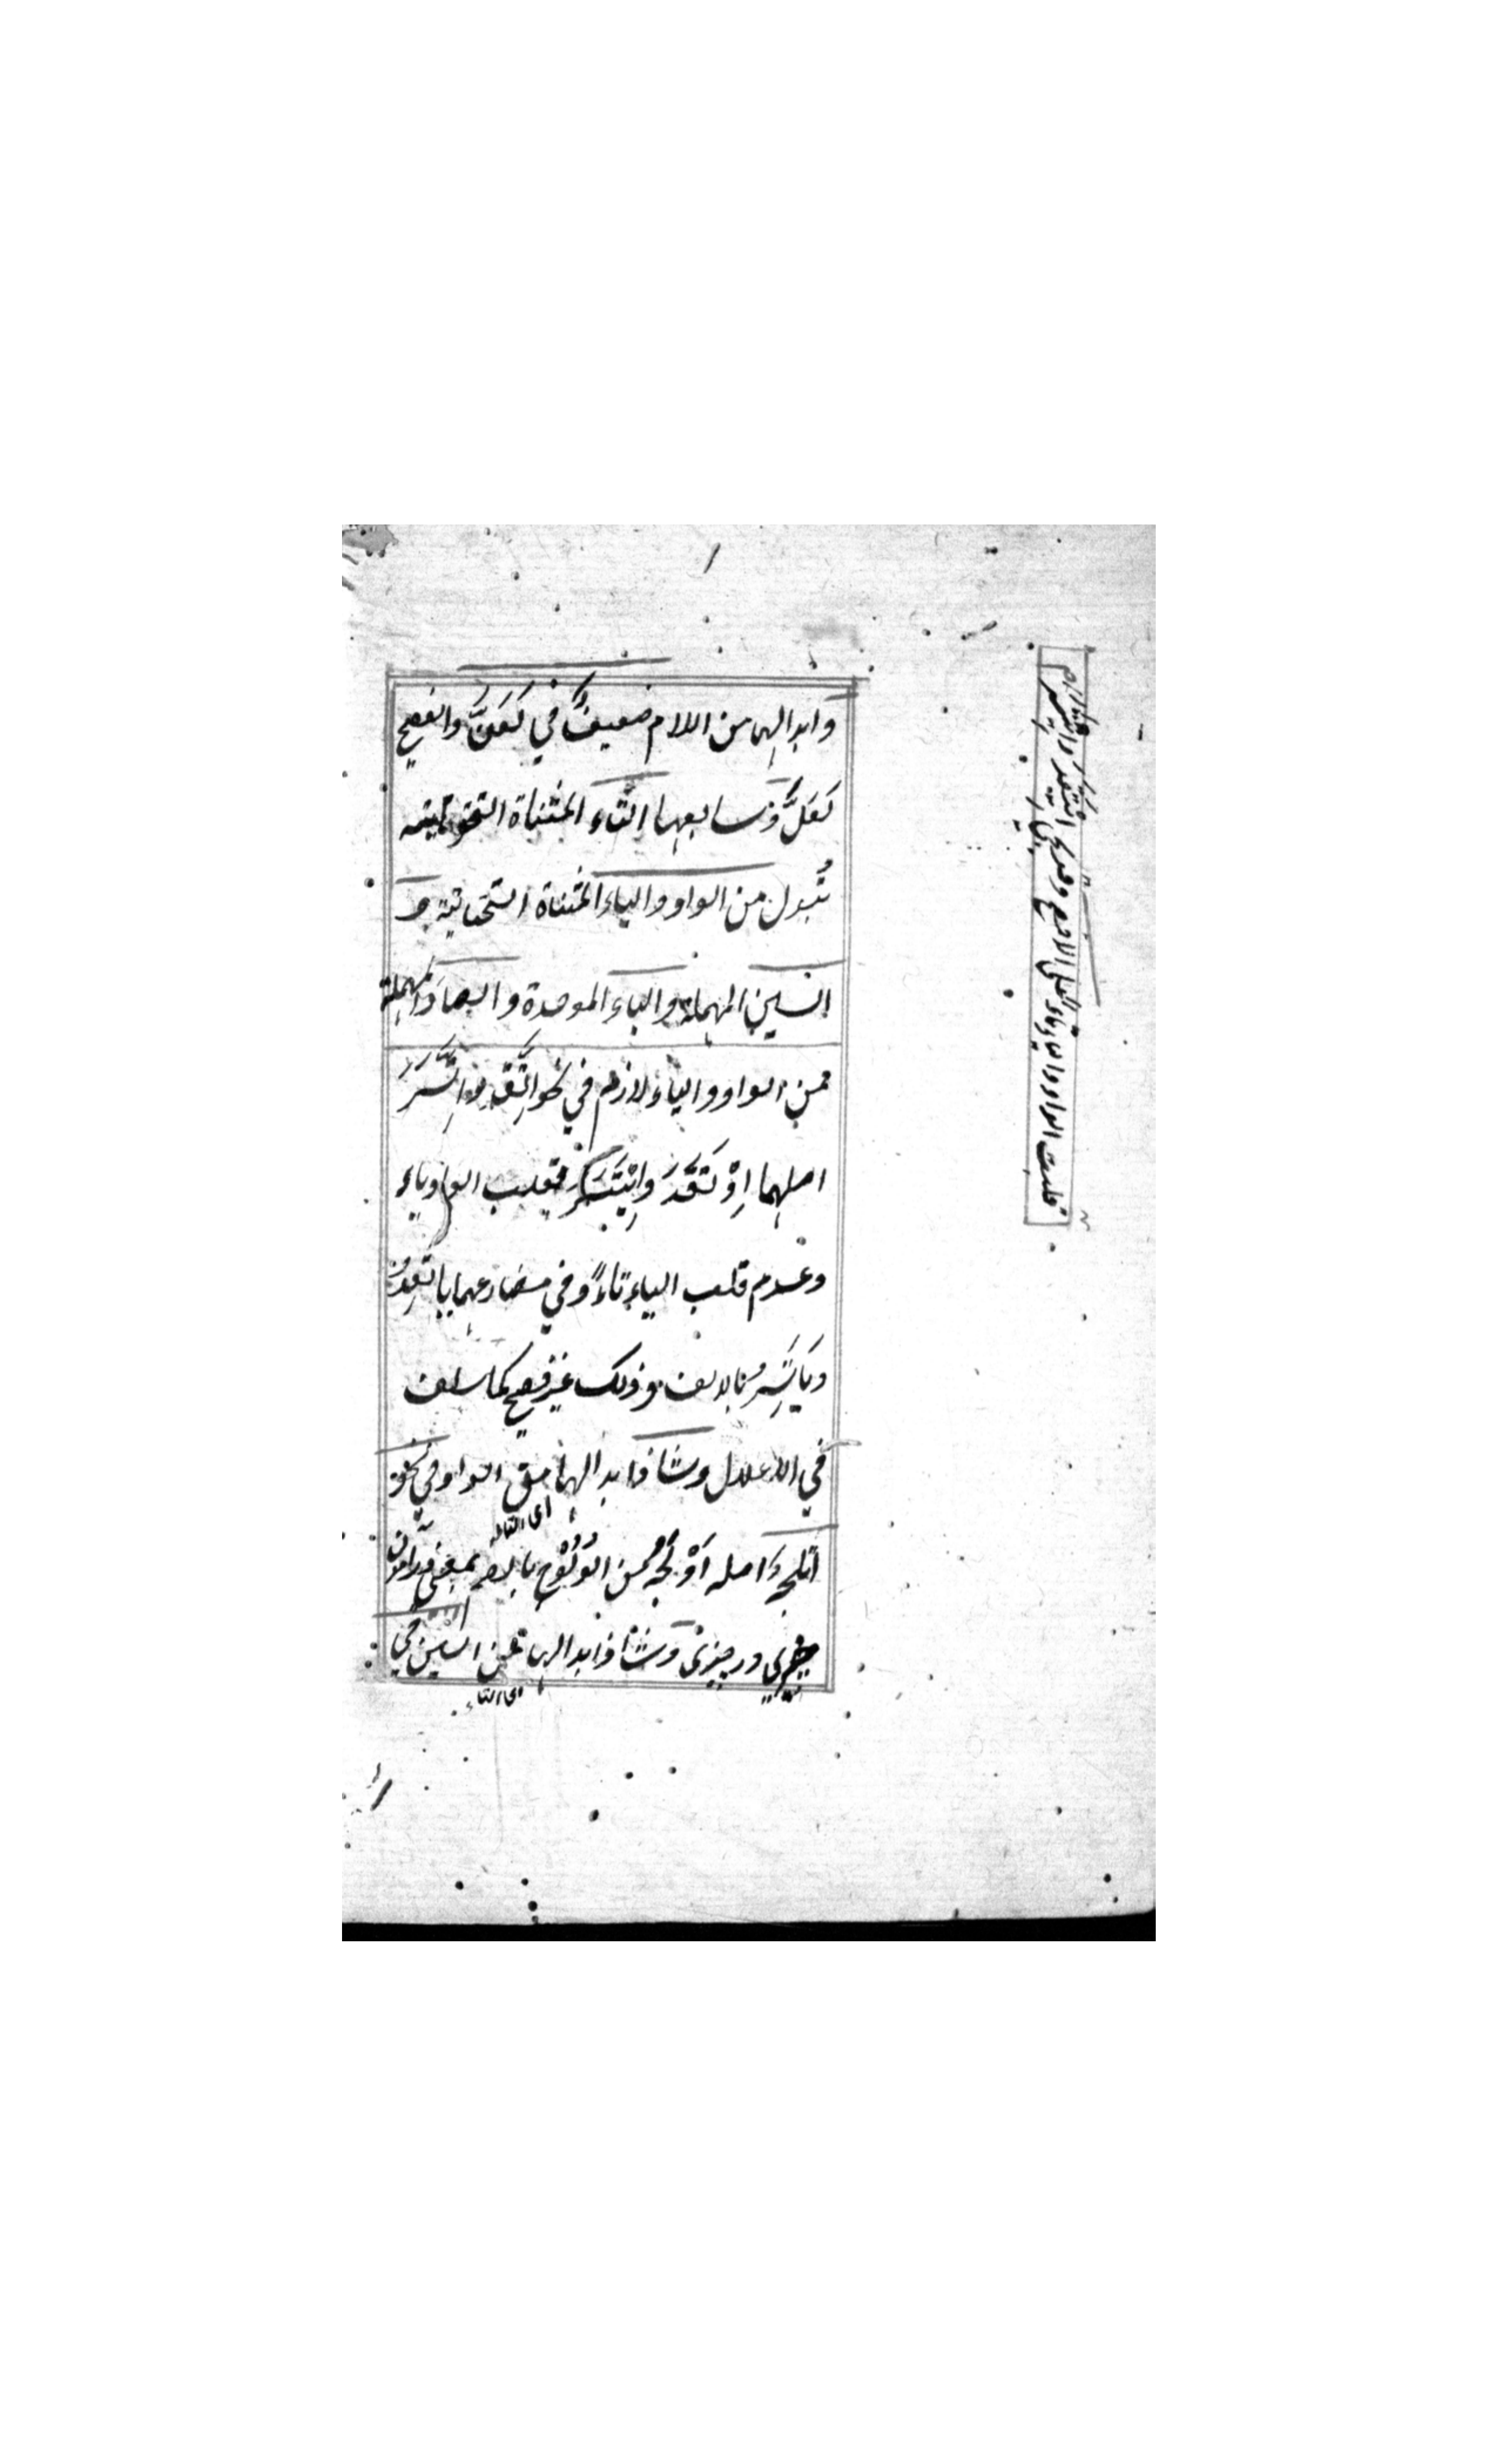 وابدالها من اللام ضعيفٌ في لَعَنَّ والفصيح
لَعَلَّ وَسابعها التاء المثناة الفوقانية
تُبدل من الواو والياء المثناة التحتانية و
السين المهملة والباء الموحدة والصاد المهملة
فمن الواو والياء لازم في نحو اِتَّقَدَ واِتَّسَرَ
اصلهما اِوْتَقَدَ وَاِيْتَسَرَ فقلب الواو ياء
وعدم قلب الياء تاءً وفي مضارعهما ياتَعِدُ
وَيَاتَسِرُ بالالف وذلك غير فصيح كما سلف
في الاعلال وشاذ ابدالها من الواو في نحو
اَتْلَجَهُ اصله اَوْلَجَهُ من الوُلُوْج بالضم بمعنى در امدن
اي التاء
چيزي در چيزى وَشاذ ابدالها من السين في
اي التاء
قلبت الواو والياء تاء على الافصح وقد يجئ